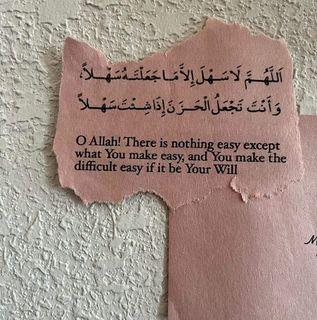 اَللَّهُمَّ لَا سَهْلَ إِلاَّ مَا جَعَلْتَهُ سَهْلاً،
وَأَنْتَ تَجْعَلُ الْحَزْنَ إِذَا شِئْتَ سَهْلاً
O Allah! There is nothing easy except
what You make easy, and You make the
difficult easy if it be Your Will